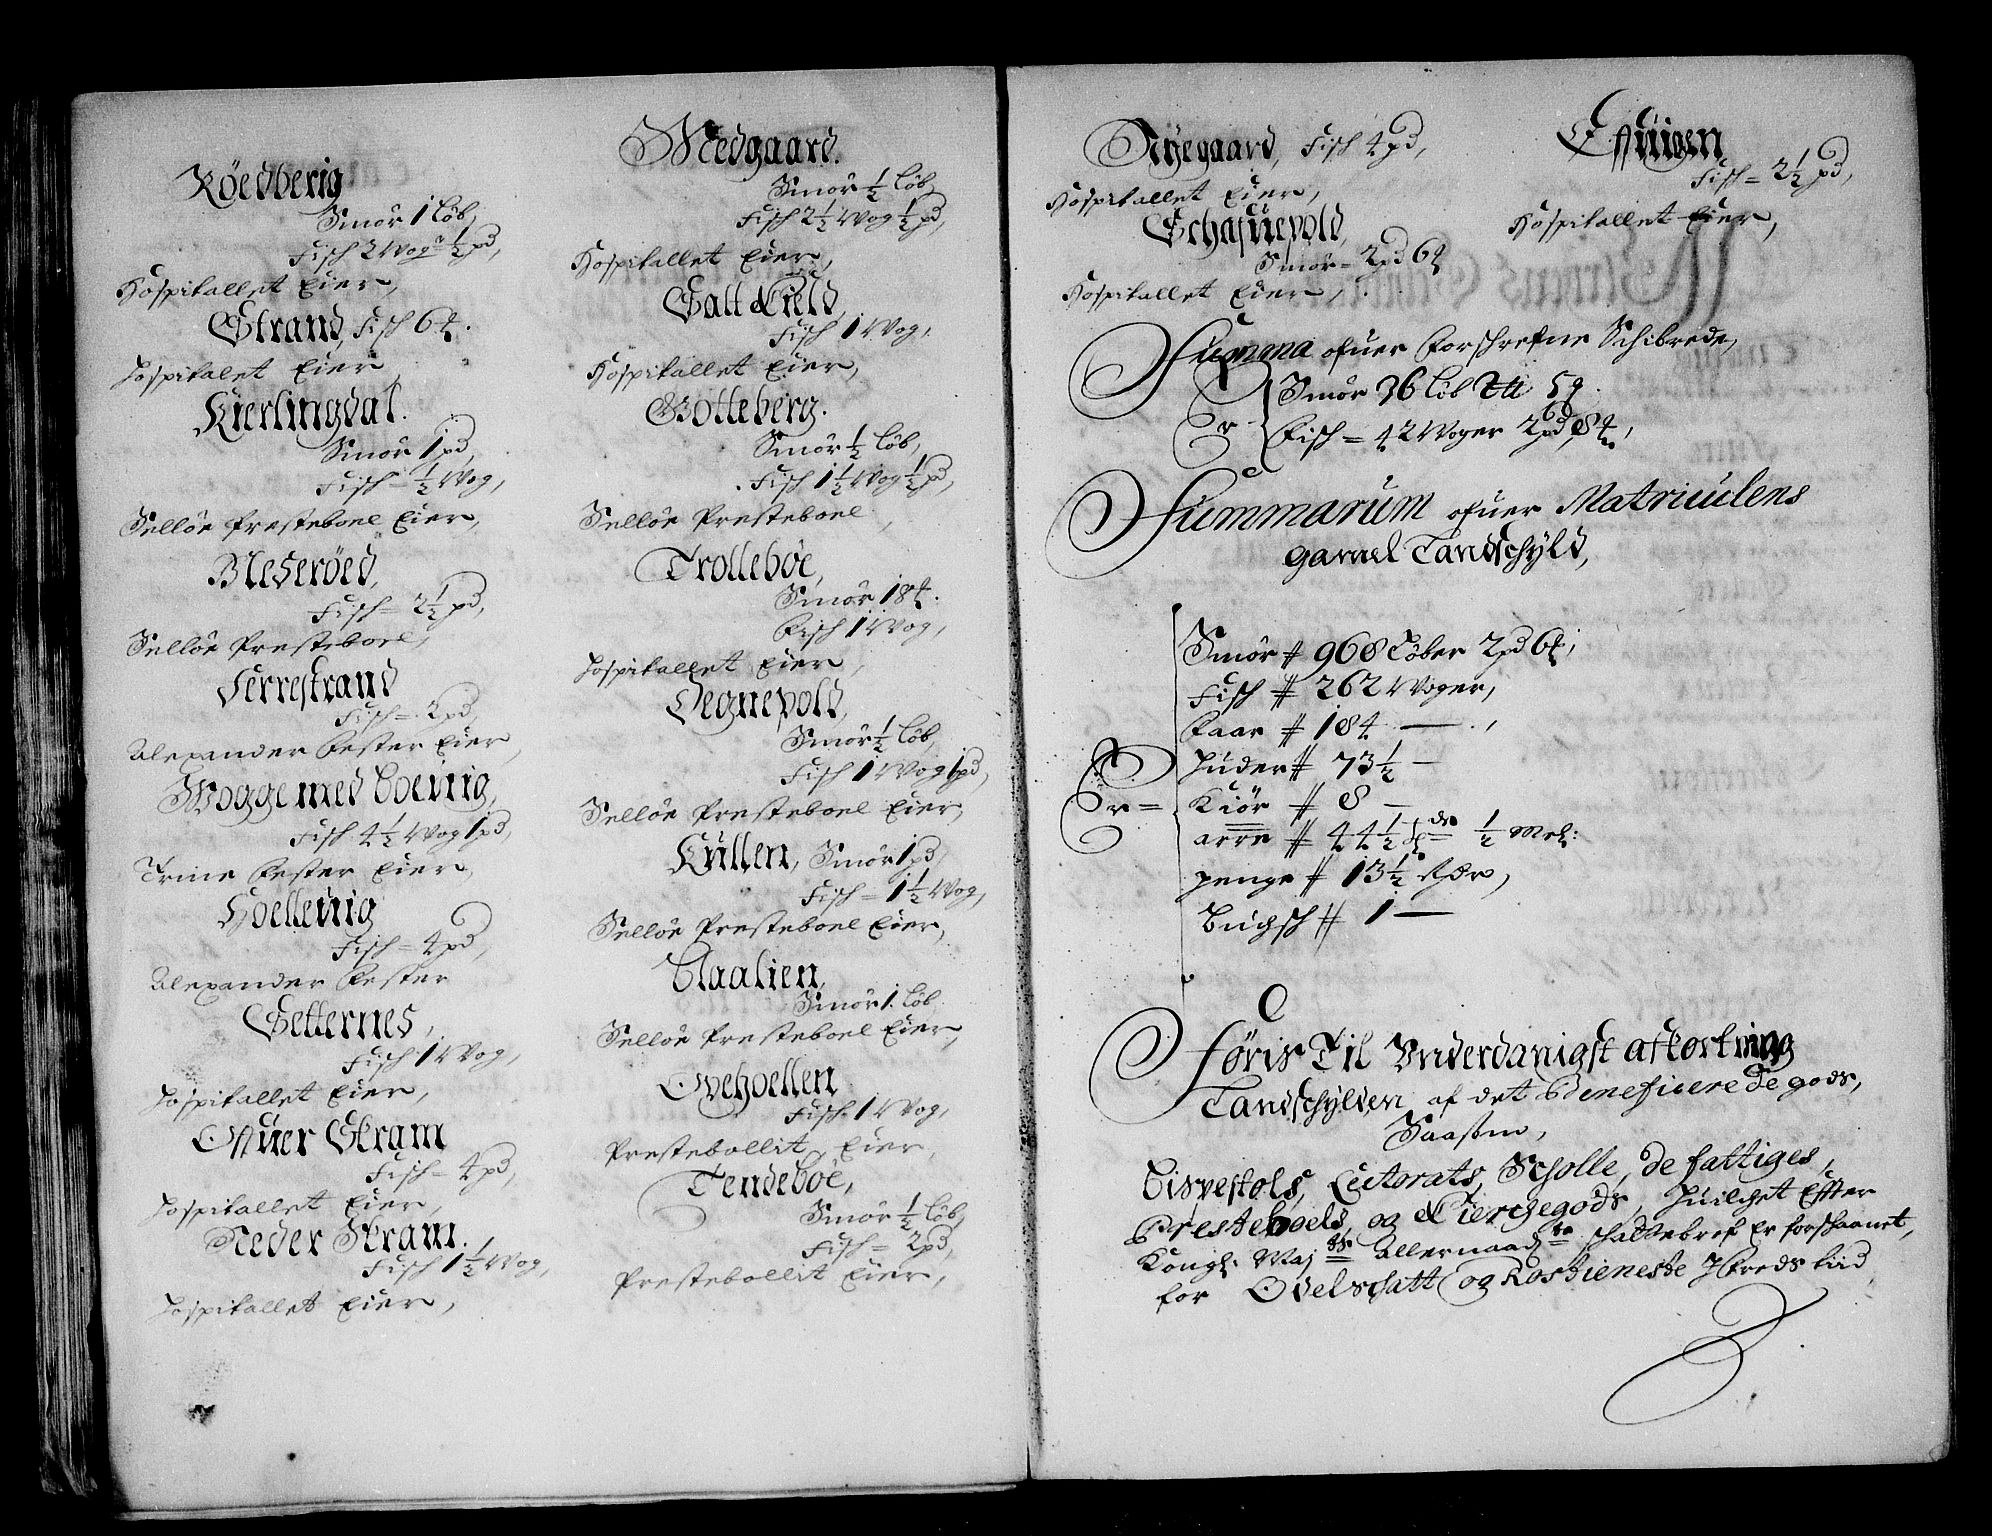 Röedberig
Smör 1 Löb,
Fisch 2 Wog ½ pd,
Hospitallet Eier,
Strand, Fisch 6 ₰.
Hospitalet Eier
Kierlingdal.
Smör 1 pd,
Fisch = ½ Wog,
Selløe Presteboel Eier,
Neseröed,
Fisch = 2½ pd,
Selløe Presteboel,
Ferrestrand
Fisch = 2 pd,
Alexander Fester Eier,
Wogge med Boeuig,
Fisch 4½ Wog 1 pd,
Trine Fester Eier,
Hoelleuig
Fisch = 4 pd,
Alexander Fester
Setternes,
Fisch 1 Wog,
Hospitallet Eier,
Offuer Skram
Fisch = 4 pd,
Hospitallet Eier,
Neder Skram.
Fisch 1½ Wog,
Hospitallet Eier,
Medgaard.
Smör ½ Löb,
Fisch 2½ Wog ½ pd,
Hospitallet Eier,
Salt Kield,
Fisch 1 Wog,
Hospitallet Eier,
Gotteberg.
Smör ½ Löb,
Fisch 1½ Wog ½ pd,
Selløe Presteboel,
Trolleböe,
Smör 18 ₰.
Fisch 1 Wog,
Hospitallet Eier,
Degnepold,
Smör ½ Löb,
Fisch 1 Wog 1 pd,
Selløe Presteboel Eier,
Kullen, Smör 1 pd,
Fisch = 1½ Wog,
Selløe Presteboel Eier,
Claalien,
Smör 1 Löb
Selløe Presteboel Eier,
Ovehoellen
Fisch 1 Wog,
Prestebollit Eier,
Tendeböe,
Smör ½ Löb,
Fisch = 2 pd,
Prestebollit Eier,
Nyegaard, Fisch 4 pd,
Hospitallet Eier,
Schafuepold,
Smör = 2 pd 6 ₰
Hospitallet Eier,
Fisch = 2½ pd,
Hospitallet Eier,
Summa ofuer Forschrefne Schibrede,
Smör 36 Löb
Er
Fisch = 42 Woger 2 pd
Summarum ofuer Matriculens
gamel Landschyld,
Smör # 968 Löber 2 pd 6 ₰,
Fisch # 262 Woger,
Faar # 184
Huder # 73½
Er = Kiör # 8
arre # 44½ ½ Mrk:
penge # 13½ Rdr,
Buchsch # 1
C
Føris Til Vnderdanigst afkortning
Landschylden af det Beneficerede gods,
Saasom,
Bispestols, Lectorats, Scholle, de fattiges,
Presteboels, og Kierchegods, Huilchet Effter
Kongl. Maj ts Allernaad ste schattebref Er forschaanet,
for Odelschatt og Rostieneste I freds tiid